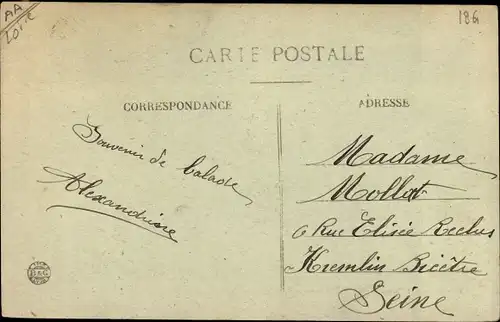 AA
Loire
186
CARTE POSTALE
CORRESPONDANCE
ADRESSE
Souvenir de balade
Alexandrine
Madame
Mollat
6 Rue Elisée Reclus
Kremlin Bicêtre
Seine
B&G